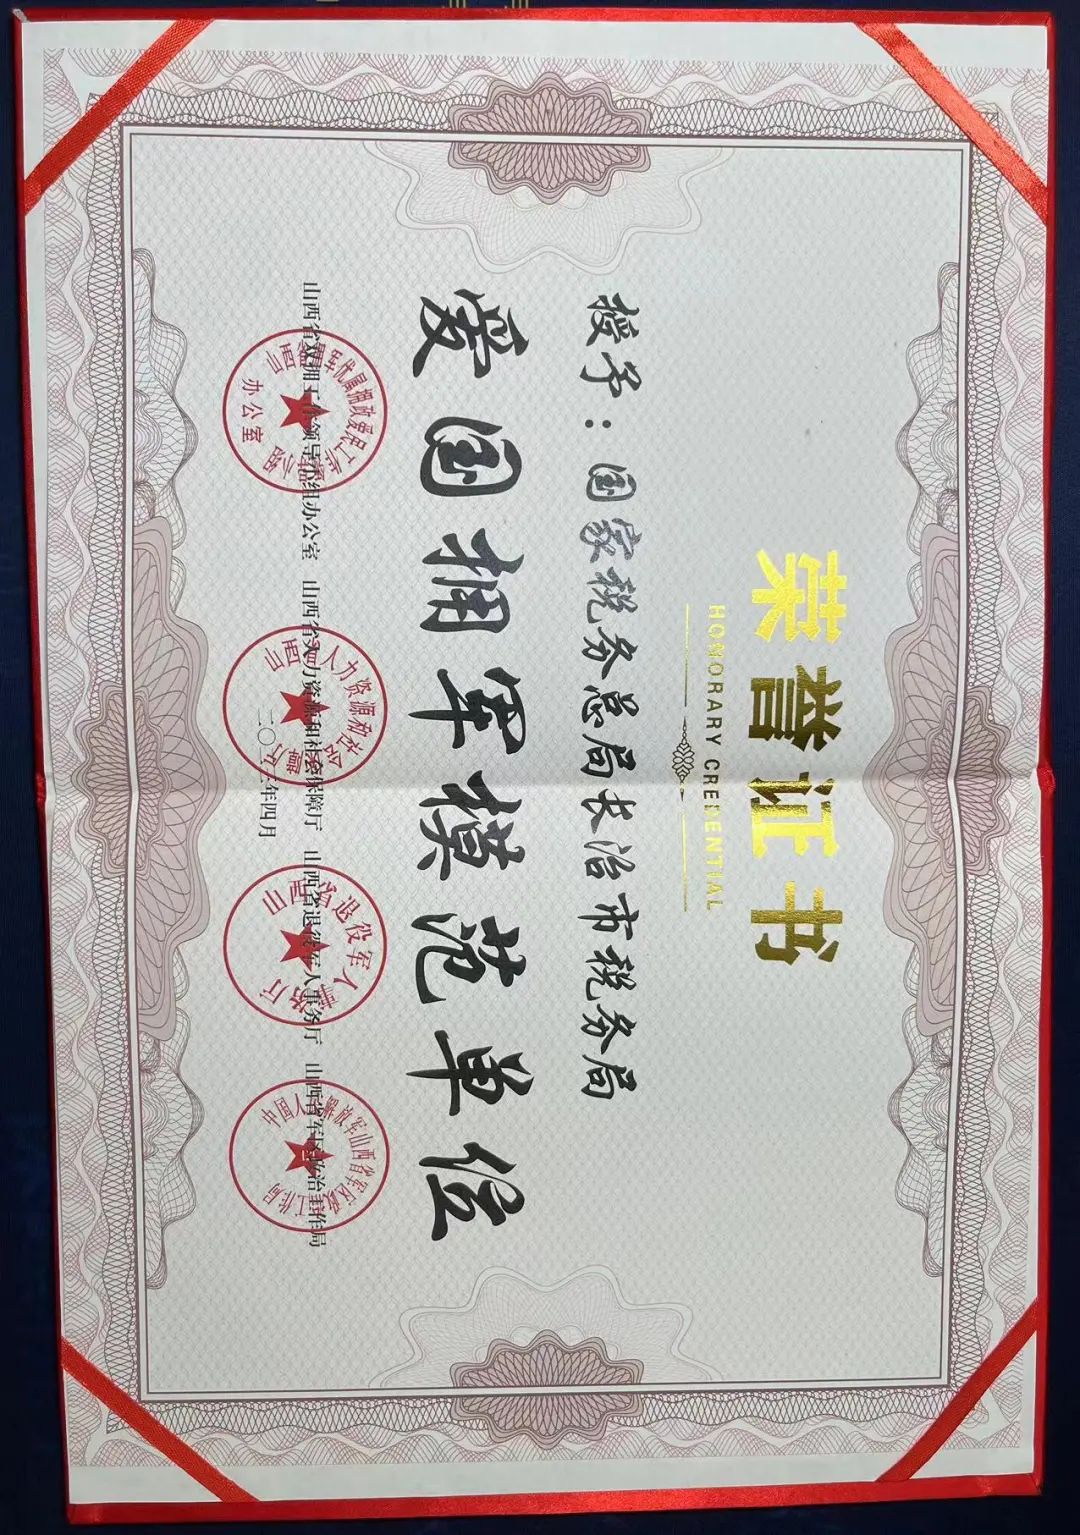 荣誉证书
HONORARY CREDENTIAL
授予：国家税务总局长治市税务局
爱国拥军模范单位
山西省双拥工作领导小组办公室 山西省人力资源和社会保障厅 山西省退役军人事务厅 山西省军区政治工作局
年四月
办公室
山西省退役军人事务厅
中国人民解放军山西省军区政治工作局